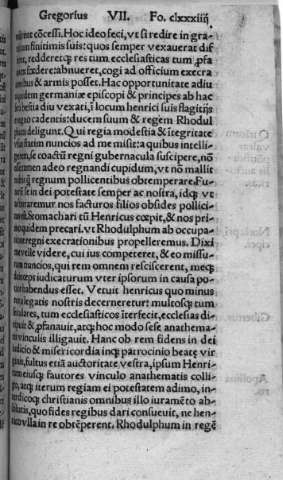 Gregorius VII. Fo. clxxxiiij
cõcessi. Hoc ideo feci, vt si redire in gra-
finitimis suis: quos semper vexauerat dif
redderetq; res tum ecclesiasticas tum ꝓfa
fœdere abnueret, cogi ad officium execra
& armis posset. Hac opportunitate adiu
germaniæ episcopi & principes ab hac
bestia diu vexati, ĩ locum henrici suis flagitijs
cadentis: ducem suum & regem Rhodul
deligunt. Qui regia modestia & ĩtegritate
statim nuncios ad me misit: a quibus intelli-
se coactũ regni gubernacula suscipere, nõ
adeo regnandi cupidum, vt nõ mallit
q̃ regnum pollicentibus obtemperare. Fu-
se in dei potestate semper ac nostra, idq; vt
nos facturos filios obsides pollici-
& omachari tũ Henricus cœpit, & nos pri-
quidem precari. vt Rhodulphum ab occupa-
regni execrationibus propelleremus. Dixi
velle videre, cui ius competeret, & eo missu-
nuncios, qui rem omnem rescisscerent, mecq;
iudicaturum vter ipsorum in causa po-
habendus esset. Vetuit henricus quo minus
legatis nostris decerneretur: multosq; tum
tum ecclesiasticos ĩterfecit, ecclesias di-
& ꝓfanauit, atq; hoc modo sese anathema-
vinculis illigauit. Hanc ob rem fidens in dei
iudicio & misericordia inq; patrocinio beatę vir
fultus etiã auctoritate vestra, ipsum Henri-
eiusq; fautores vinculo anathematis colli-
atq; iterum regiam ei potestatem adimo, in-
christianis omnibus illo iuramẽto ab-
quo fides regibus dari consueuit, ne hen-
vlla in re obtẽperent. Rhodulphum in regẽ